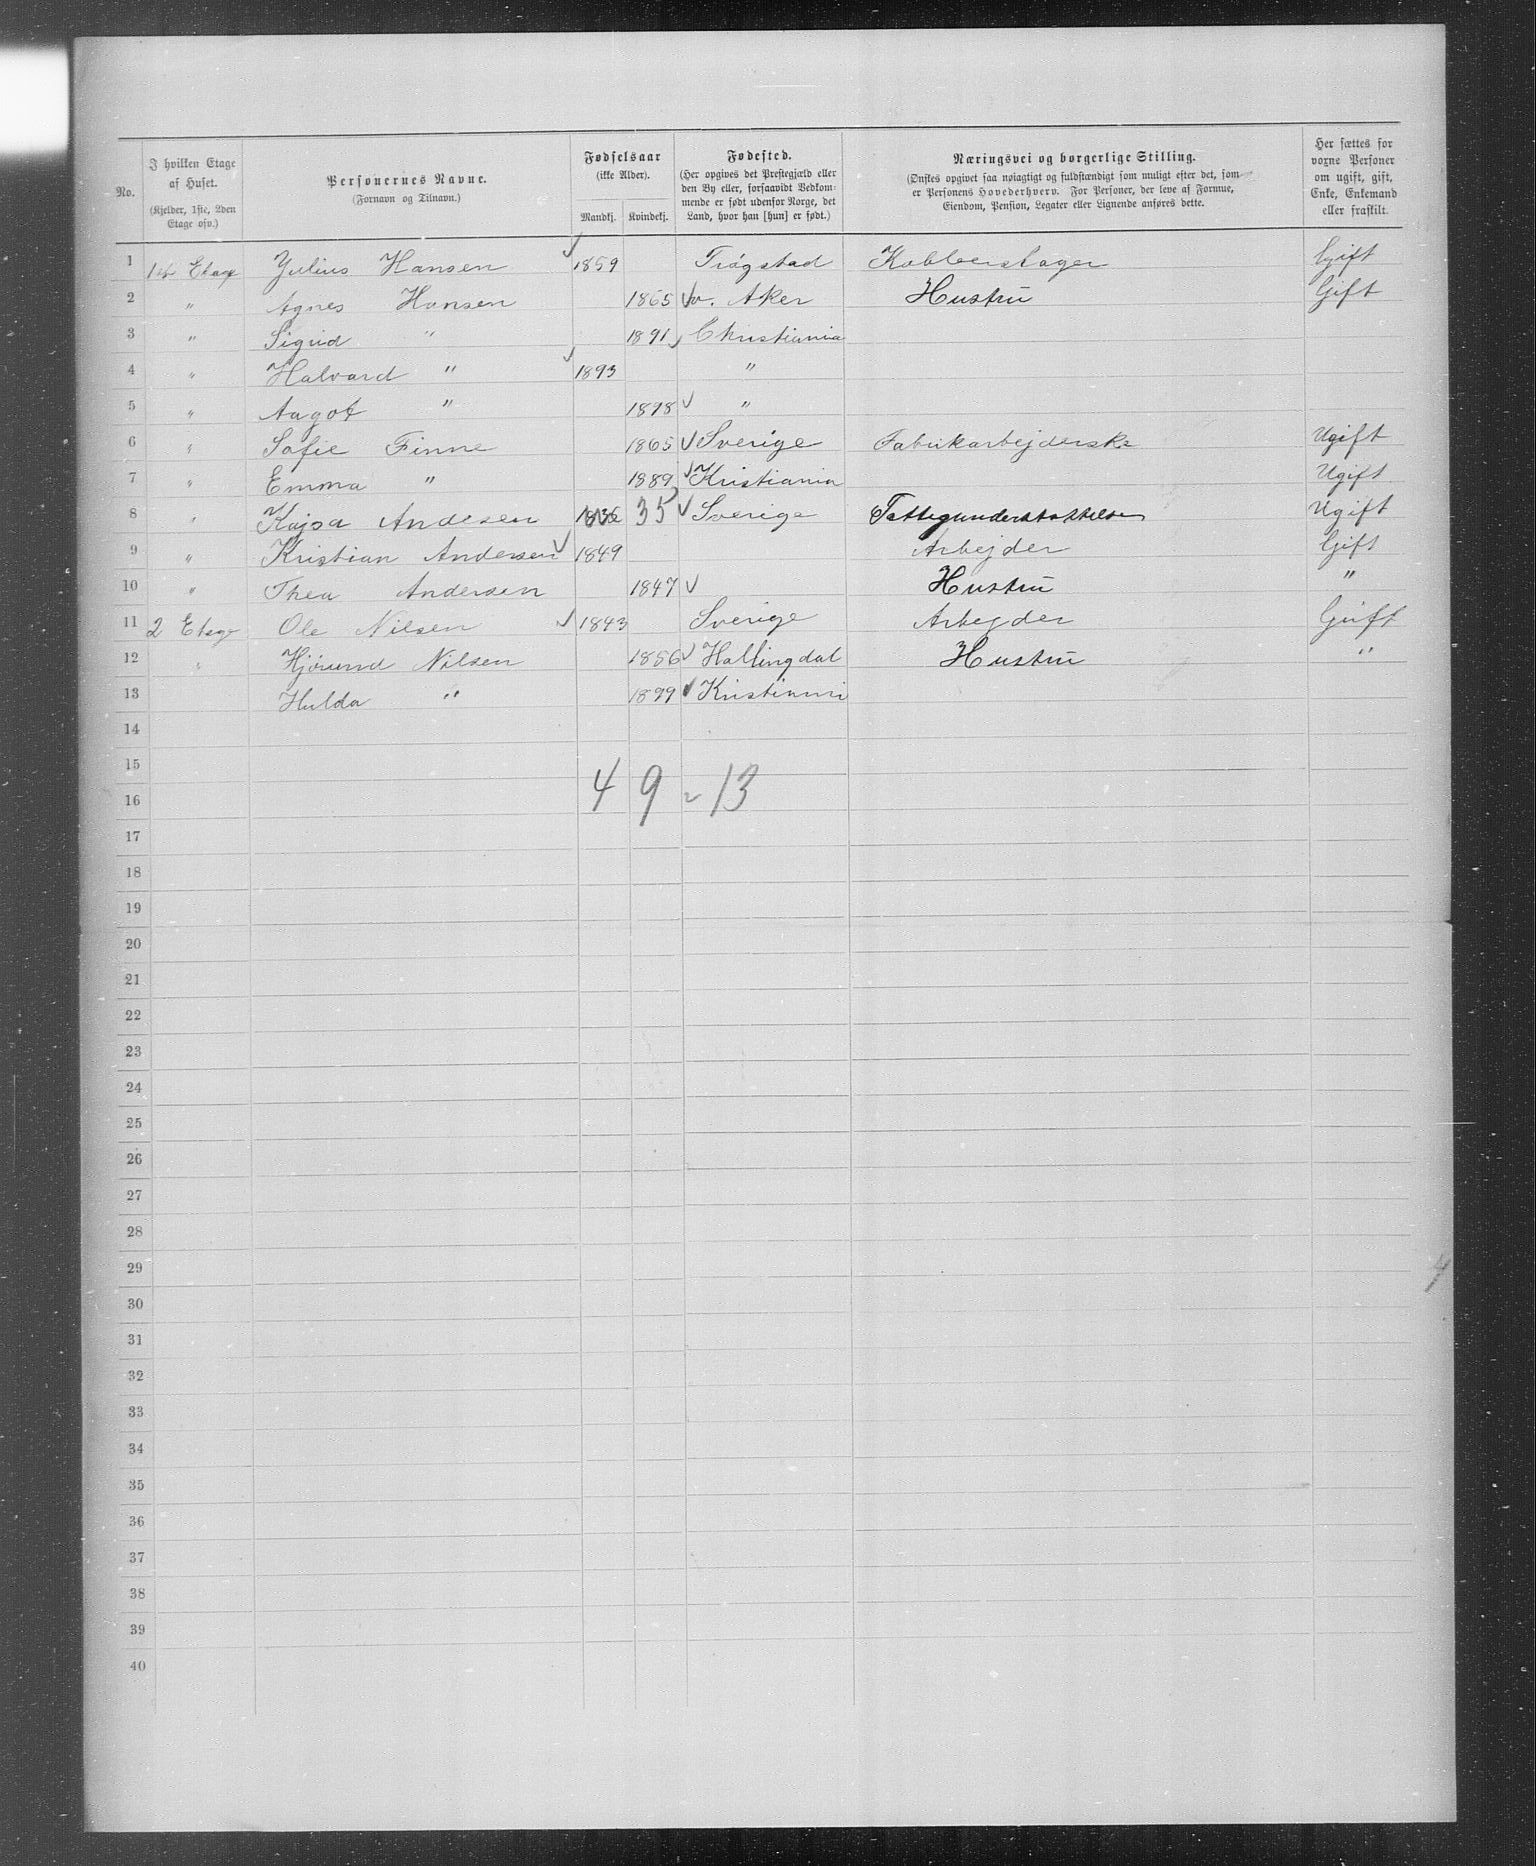 No.
I hvilken Etage af Huset.
(Kjelder, 1ste, 2den Etage osv.)
Personernes Navne.
(Fornavn og Tilnavn.)
Fødselsaar
(ikke Alder).
Mandkj. Kvindekj.
Fødested.
(Her opgives det Prestegjæld eller den By eller, forsaavidt Vedkommende er født udenfor Norge, det Land, hvor han [hun] er født.)
Næringsvei og borgerlige Stilling.
(Ønskes opgivet saa nøiagtigt og fuldstændigt som muligt efter det, som er Personens Hovederhverv. For Personer, der leve af Formue, Eiendom, Pension, Legater eller Lignende anføres dette.
Her sættes for voxne Personer om ugift, gift, Enke, Enkemand eller fraskilt.
1 1ste Etage Julius Hansen 1859 Trøgstad Kobberslager Gift
2 " Agnes Hansen 1865 v. Aker Hustru Gift
3 " Sigrid " 1891 Christiania
4 " Halvard " 1893 "
5 " Aagot " 1898 "
6 " Sofie Finne 1865 Sverige Fabrikarbejderske Ugift
7 " Emma " 1889 Kristiania Ugift
8 " Kajsa Andesen 35 Sverige Fattigunderstøttelse Ugift
9 " Kristian Andersen 1849 Arbejder Gift
10 " Thea Andersen 1847 Hustru "
11 2 Etage Ole Nilsen 1843 Sverige Arbejder Gift
12 " Hjørund Nilsen 1856 Hallingdal Hustru "
13 Hulda " 1899 Kristiania
14
15
4 9 = 13
16
17
18
19
20
21
22
23
24
25
26
27
28
29
30
31
32
33
34
35
36
37
38
39
40
4